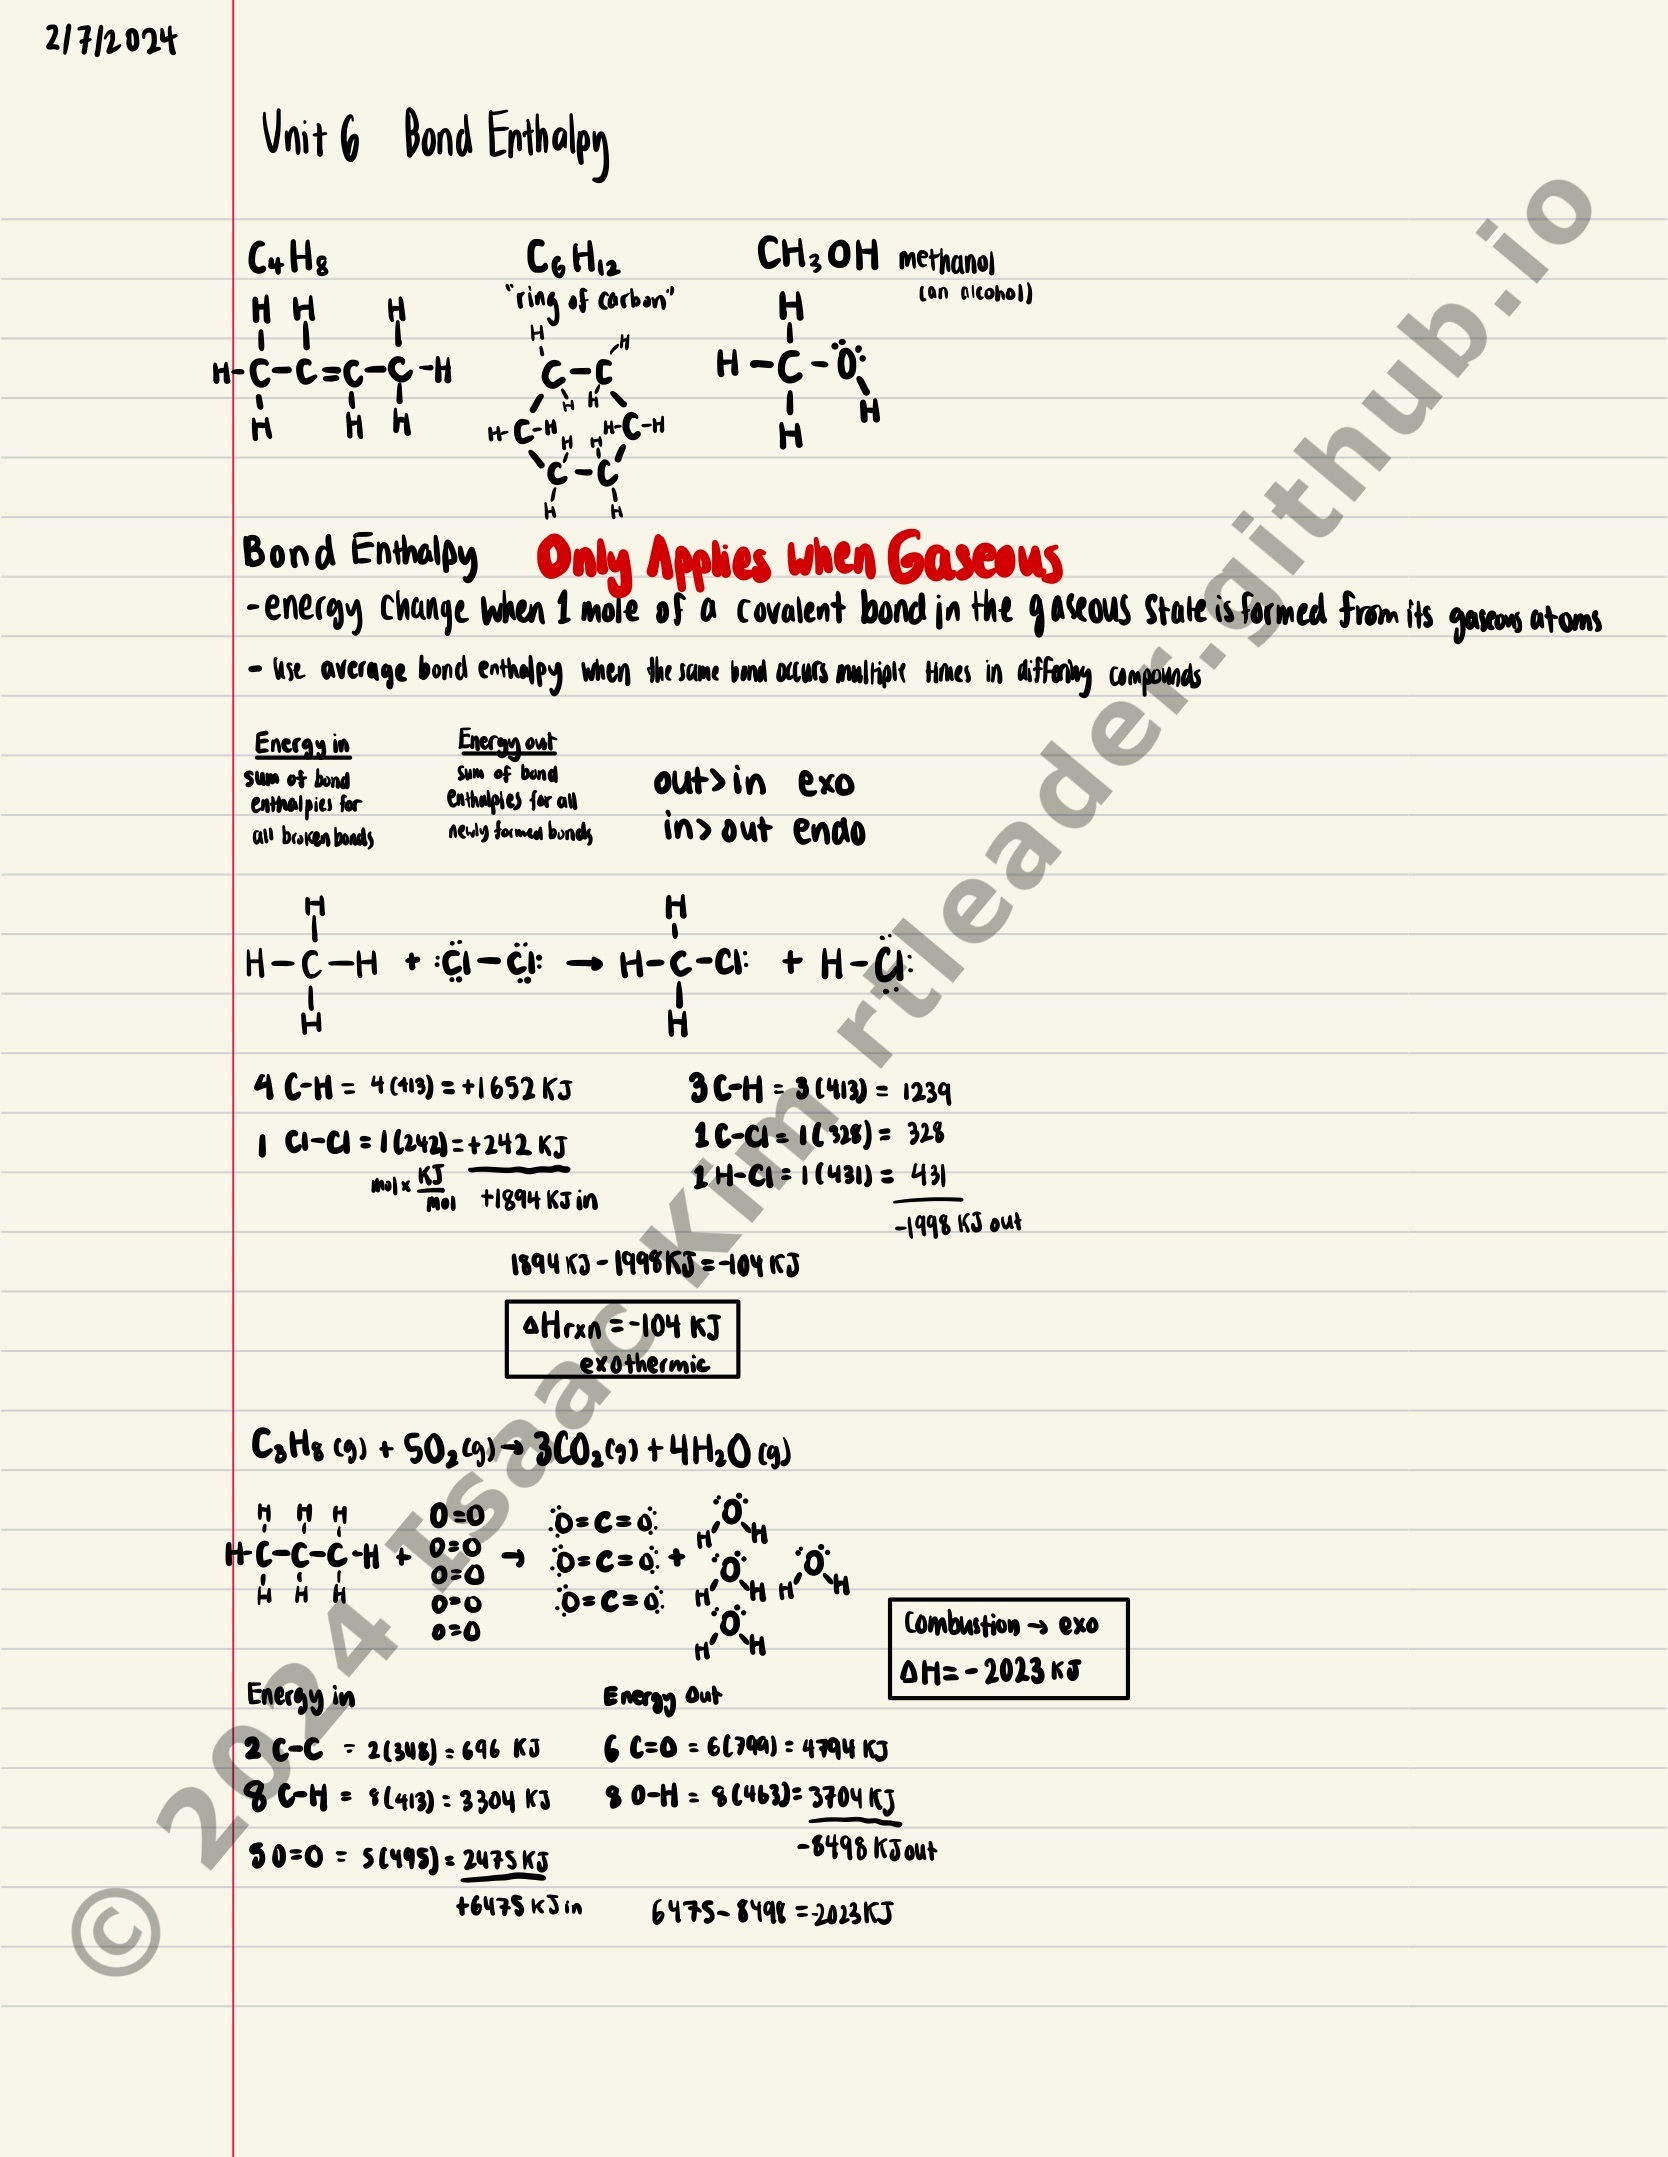 2/7/2024
Unit 6 Bond Enthalpy
C₄H₈ C₆H₁₂ CH₃OH methanol
"ring of carbon" (an alcohol)
H H H
H-C-C=C-C-H
H H H
H H
C-C
H H
H-C-H H-C-H
H H
C-C
H H
H
H-C-O
H
H
Bond Enthalpy Only Applies when Gaseous
-energy change when 1 mole of a covalent bond in the gaseous state is formed from its gaseous atoms
- use average bond enthalpy when the same bond occurs multiple times in differing compounds
Energy in
sum of bond
enthalpies for
all broken bonds
Energy out
sum of bond
enthalpies for all
newly formed bonds
out>in exo
in>out endo
H H
H-C-H + :Cl-Cl: → H-C-Cl: + H-Cl:
H H
4 C-H = 4(413) = +1652 KJ
1 Cl-Cl = 1(242) = +242 KJ
mol x KJ/mol +1894 KJ in
3 C-H = 3(413) = 1239
1 C-Cl = 1(328) = 328
1 H-Cl = 1(431) = 431
-1998 KJ out
1894 KJ - 1998 KJ = -104 KJ
ΔHrxn = -104 KJ
exothermic
C₃H₈(g) + 5O₂(g) → 3CO₂(g) + 4H₂O(g)
H H H
H-C-C-C-H +
H H H
O=O
O=O
O=O
O=O
O=O
→
:O=C=O:
:O=C=O: +
:O=C=O:
O
H H
O
H H
O
H H
O
H H
Combustion → exo
ΔH = -2023 KJ
Energy in
2 C-C = 2(348) = 696 KJ
8 C-H = 8(413) = 3304 KJ
5 O=O = 5(495) = 2475 KJ
+6475 KJ in
Energy Out
6 C=O = 6(799) = 4794 KJ
8 O-H = 8(463) = 3704 KJ
-8498 KJ out
6475 - 8498 = -2023 KJ
© 2024 Isaac Kim rtleader.github.io